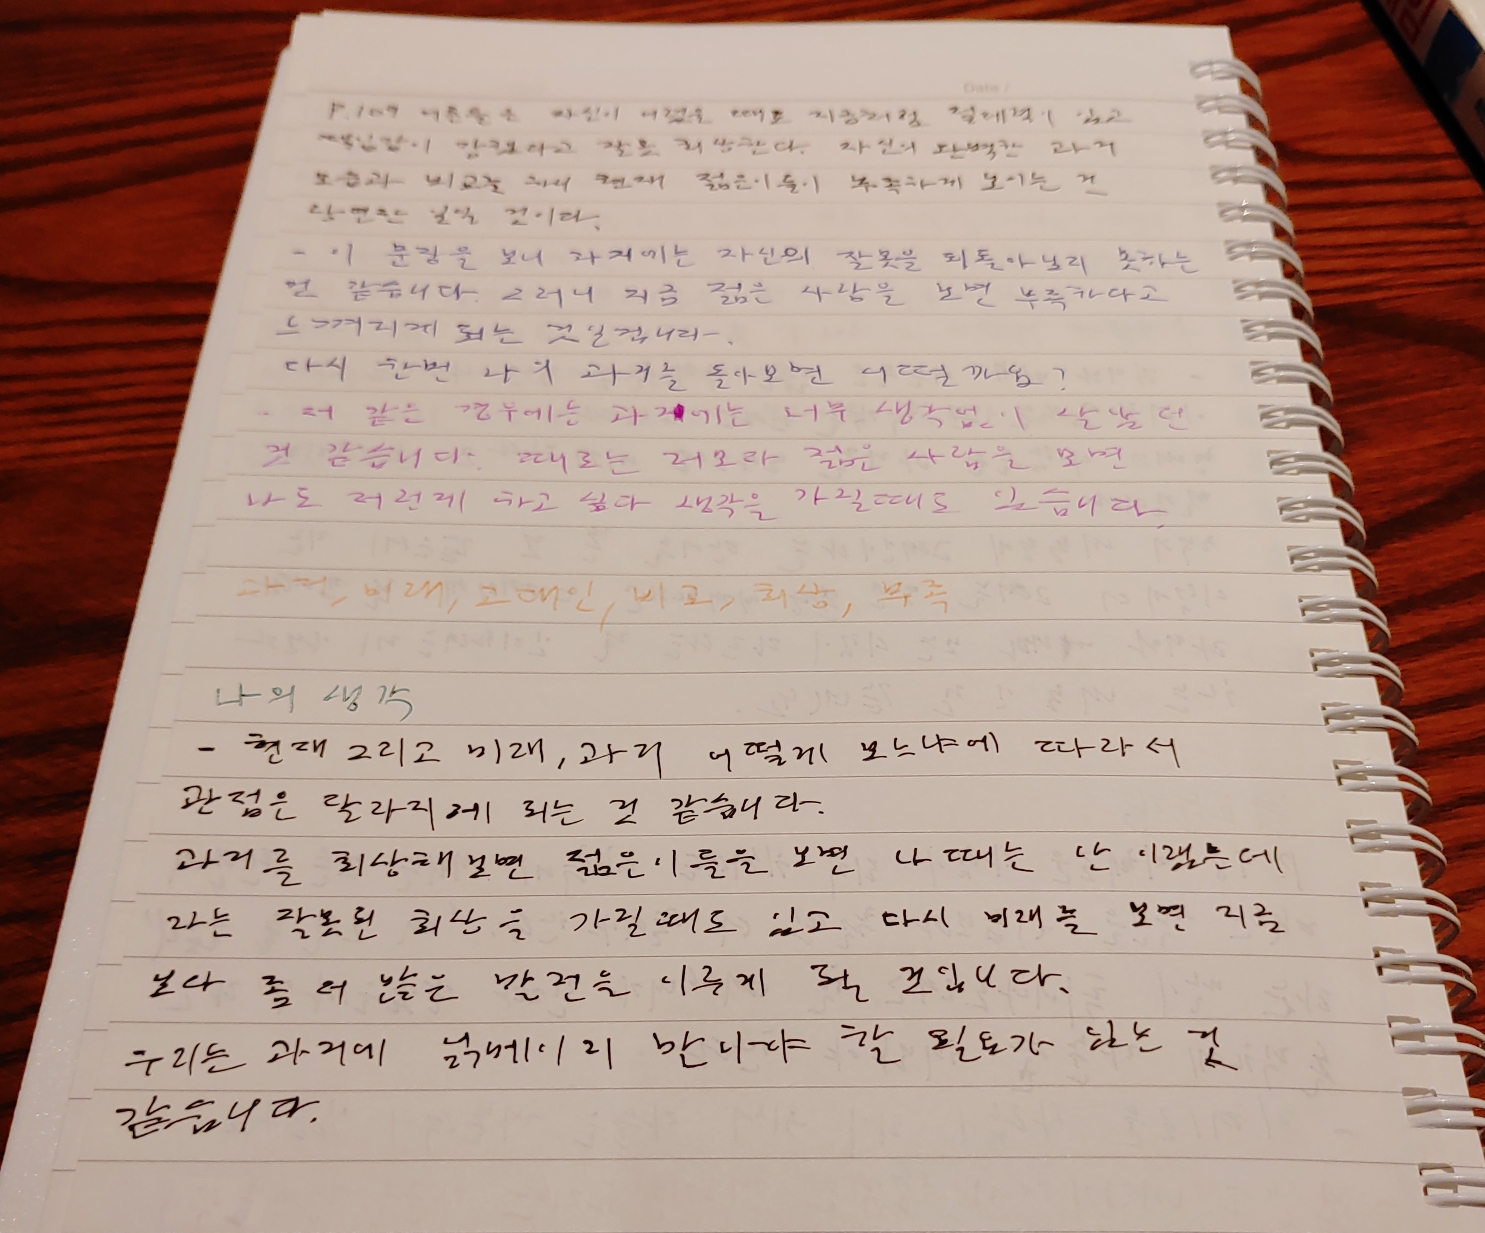 P.109 어른들은 자신이 어렸을 때도 지금처럼 절대적이 있고
책임감이 강했다고 잘못 회상한다. 자신의 완벽한 과거
모습과 비교를 해서 현재 젊은이들이 부족하게 보이는 건
당연한 일일 것이다.
- 이 문장을 보니 과거에는 자신의 잘못을 뒤돌아보지 못하는
것 같습니다. 그러니 지금 젊은 사람을 보면 부족하다고
느껴지게 되는 것일겁니다.
다시 한번 나의 과거를 돌아보면 어떨까요?
- 저 같은 경우에는 과거에는 너무 생각없이 살았던
것 같습니다. 때로는 저보다 젊은 사람을 보면
나도 저런게 하고 싶다 생각을 가질때도 있습니다.
과거, 미래, 현대인, 비교, 회상, 부족
나의 생각
- 현재 그리고 미래, 과거 어떻게 보느냐에 따라서
관점은 달라지에 되는 것 같습니다.
과거를 회상해보면 젊은이들을 보면 나 때는 난 이랬는데
라는 잘못된 회상을 가질때도 있고 다시 미래를 보면 지금
보다 좀 더 많은 발전을 이루게 될 것입니다.
우리는 과거에 얽메이지 않아야 할 필요가 있는 것
같습니다.